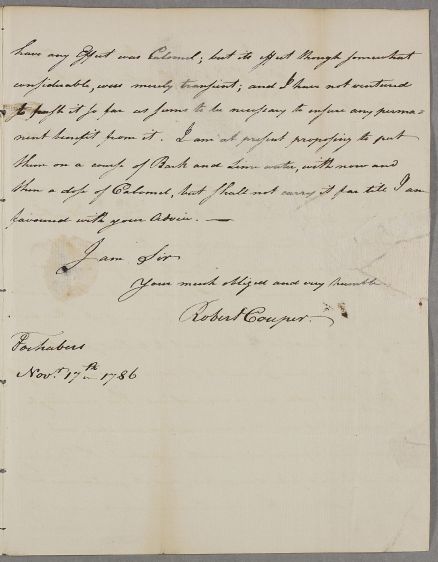 have any Effect was Calomel; but its effect though somewhat
considerable, was merely transient; and I have not ventured
to push it so far as seems to be necessary to insure any perma-
nent benefit from it. I am at present proposing to put
them on a course of Bark and Lime water, with now and
then a dose of Calomel, but shall not carry it far till I am
favoured with your Advice. —
I am Sir
Your much obliged and very humble
Robert Couper.
Fochabers
Novr. 17th 1786